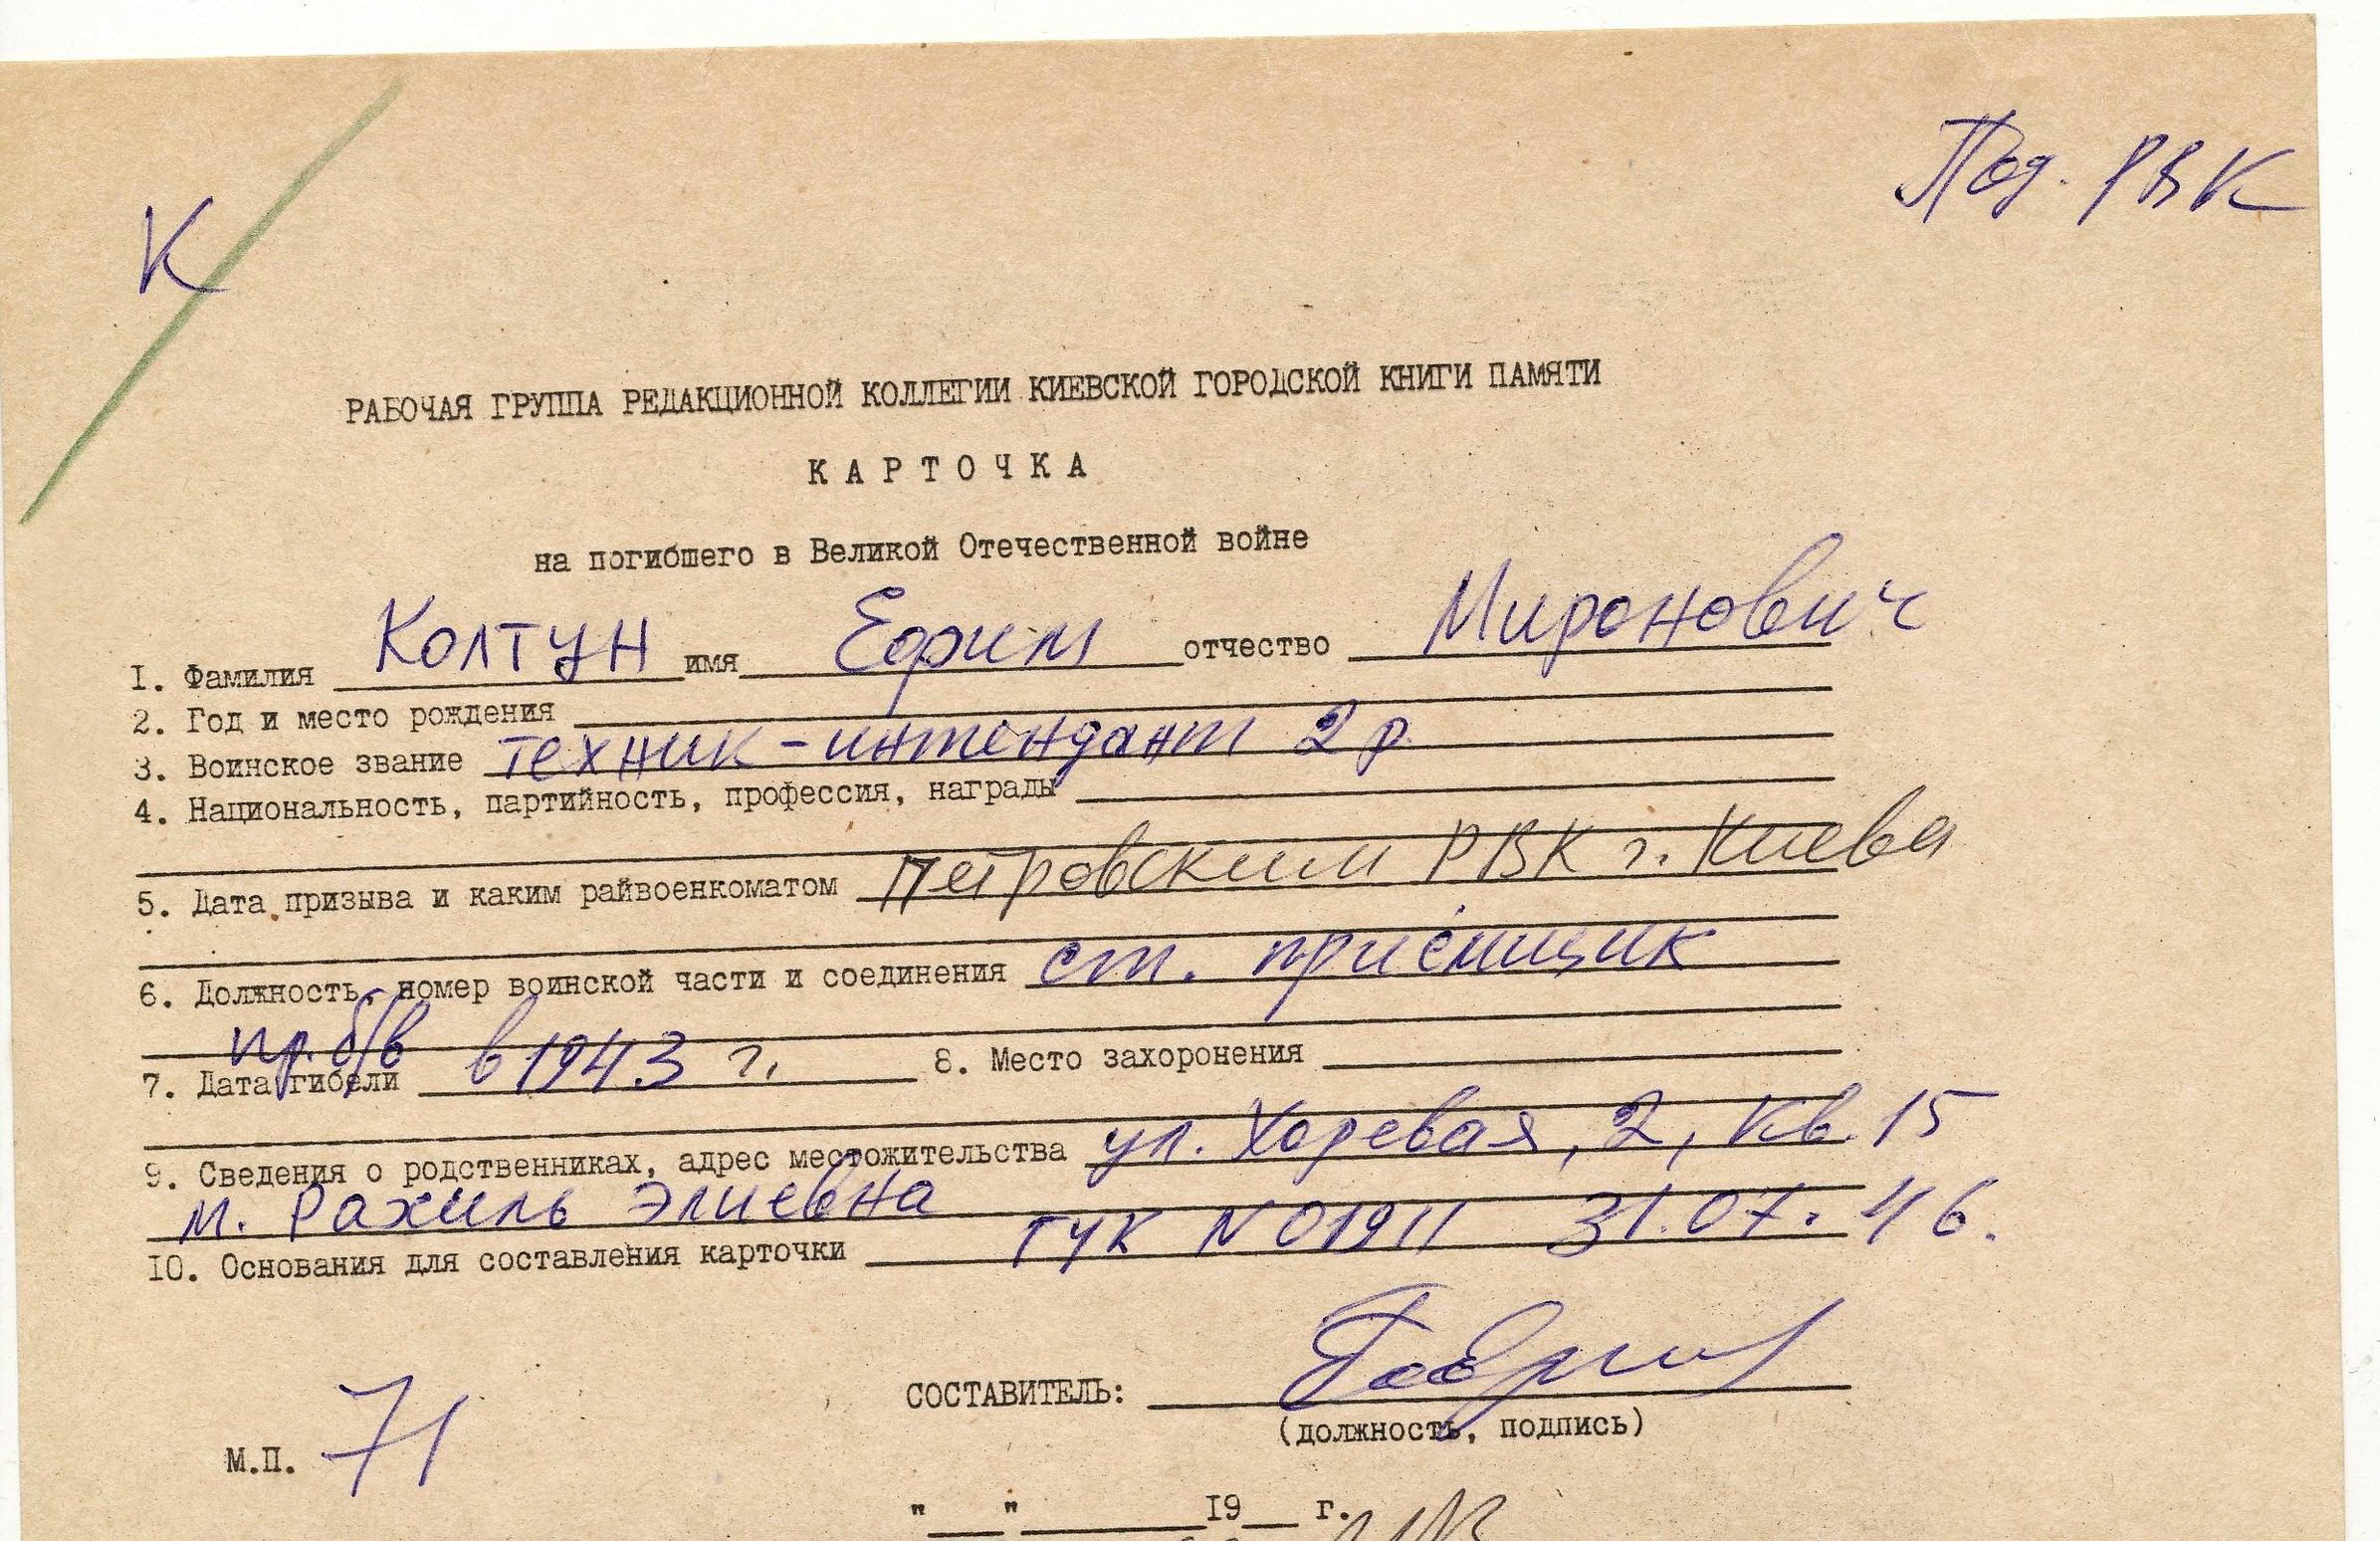 К
Под. РВК
РАБОЧАЯ ГРУППА РЕДАКЦИОННОЙ КОЛЛЕГИИ КИЕВСКОЙ ГОРОДСКОЙ КНИГИ ПАМЯТИ
КАРТОЧКА
на погибшего в Великой Отечественной войне
I. Фамилия Колтун имя Ефим отчество Миронович
2. Год и место рождения
3. Воинское звание техник-интендант 2 р.
4. Национальность, партийность, профессия, награды
5. Дата призыва и каким райвоенкоматом Петровским РВК г. Киева
6. Должность, номер воинской части и соединения ст. приёмщик
пр. б/в
7. Дата гибели в 1943 г. 8. Место захоронения
9. Сведения о родственниках, адрес местожительства ул. Хоревая, 2, кв. 15
м. Рахиль Элиевна
IO. Основания для составления карточки ГУК N 01911 31.07.46.
СОСТАВИТЕЛЬ:
(должность, подпись)
М.П. 71
"___"________I9__ г.